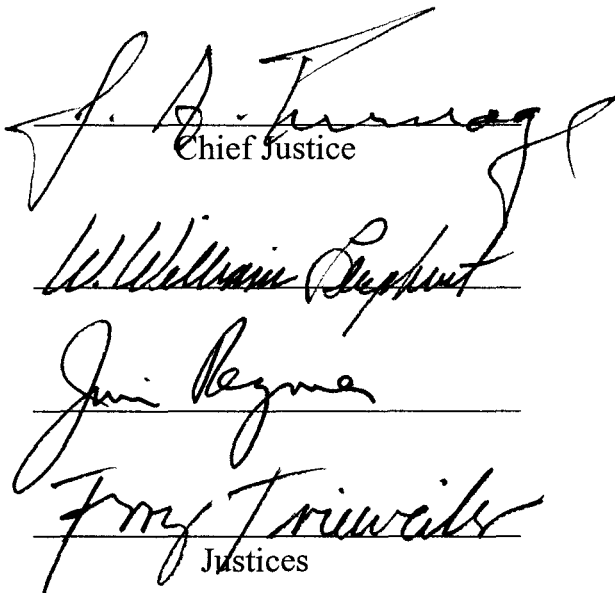 J. A. Turnage
Chief Justice
W. William Leaphart
Jim Regnier
Terry Trieweiler
Justices